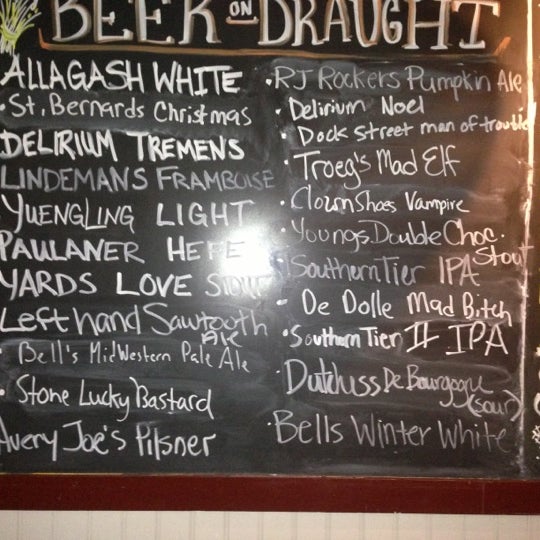 BEER ON DRAUGHT
ALLAGASH WHITE
• St. Bernards Christmas
DELIRIUM TREMENS
LINDEMANS FRAMBOISE
YUENGLING LIGHT
PAULANER HEFE
YARDS LOVE STOUT
Left hand Sawtooth
Ale
• Bell's Midwestern Pale Ale
• Stone Lucky Bastard
Avery Joe's Pilsner
• RJ Rockers Pumpkin Ale
• Delirium Noel
Dock Street man of trouble
• Troeg's Mad Elf
• Clown Shoes Vampire
• Youngs Double Choc.
Stout
Southern Tier IPA
• De Dolle Mad Bitch
• Southern Tier II IPA
• Dutchuss De Bourgogne
(sour)
• Bells Winter White